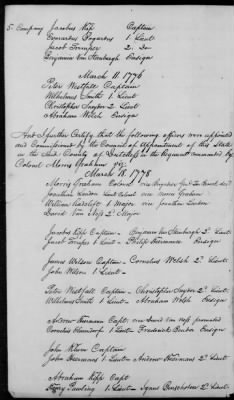 5 Company Jacobus Kip Captain
Evenardus Bogardus 1 Lieut
Jacob Tremper 2. Do
Benjamin Van Steenburgh Ensign
March 11. 1776
Peter Westfall Captain
Wilhelmus Smith 1 Lieut
Christopher Snyder 2 Lieut
Abraham Welch Ensign
And I further Certify that the following officers were appointed
and Commissioned by the Council of Appointment of this State
in the said County of Dutchess in the Regiment commanded by
Colonel Morris Graham viz.
March 18. 1778
Morris Graham Colonel
Jonathan Landon
William Radclift 1 Major
David Van Ness 2 Major
Jacobus Kipp Captain - Benjamin Van Steenburgh 2 Lieut:
Jacob Tremper 1 Lieut - Philip Ensign
James Wilson Captain - Cornelius Welch 2 Lieut:
John Wilson 1 Lieut -
Peter Westfall Captain - Christopher Snyder 2 Lieut:
Wilhelmus Smith 1 Lieut - Abraham Welch Ensign
Andrew Heermans Capt. vice David Van Ness promoted
Cornelius 1 Lieut - Frederick Ensign
John Captain
John Heermans 1 Lieut - Andrew Heermans 2 Lieut:
Abraham Kipp Capt
Levy Pauling 1 Lieut - 2 Lieut: